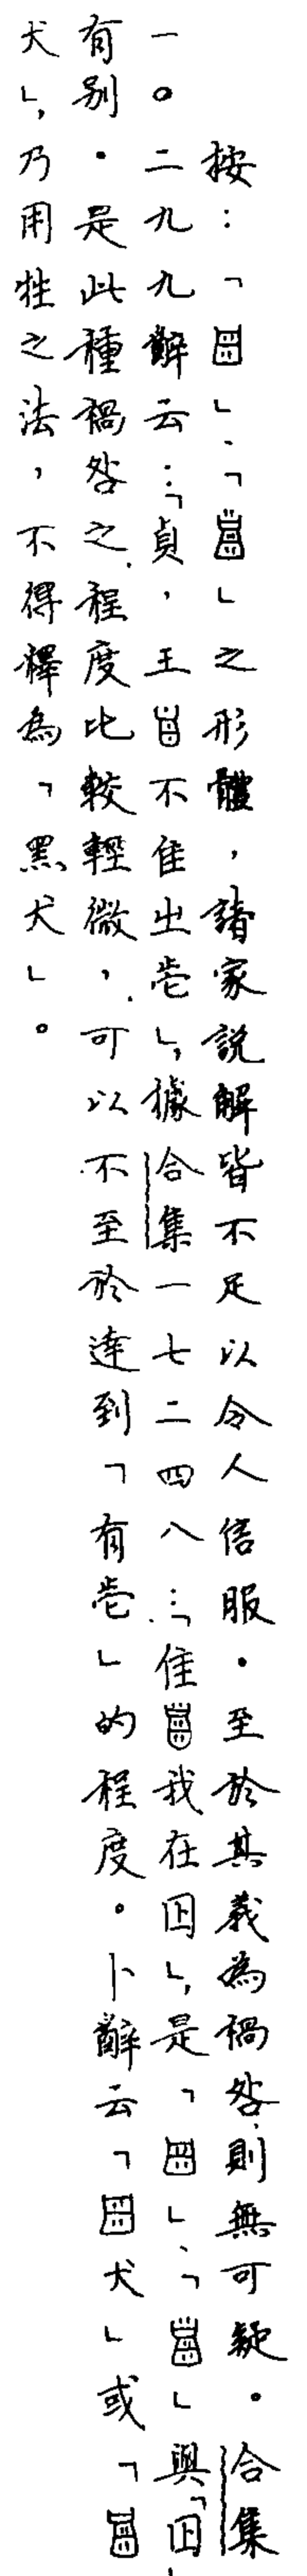 按：「」、「」之形體，諸家說解皆不足以令人信服。至於其義為禍咎，則無可疑。合集
一〇二九九辭云：「貞，王不隹㞢壱」，據合集一七二四八：「隹我在囙」，是「」、「」與「囙」
有別。是此種禍咎之程度比較輕微，可以不至於達到「有壱」的程度。卜辭云「犬」或「
犬」，乃用牲之法，不得釋為「黑犬」。